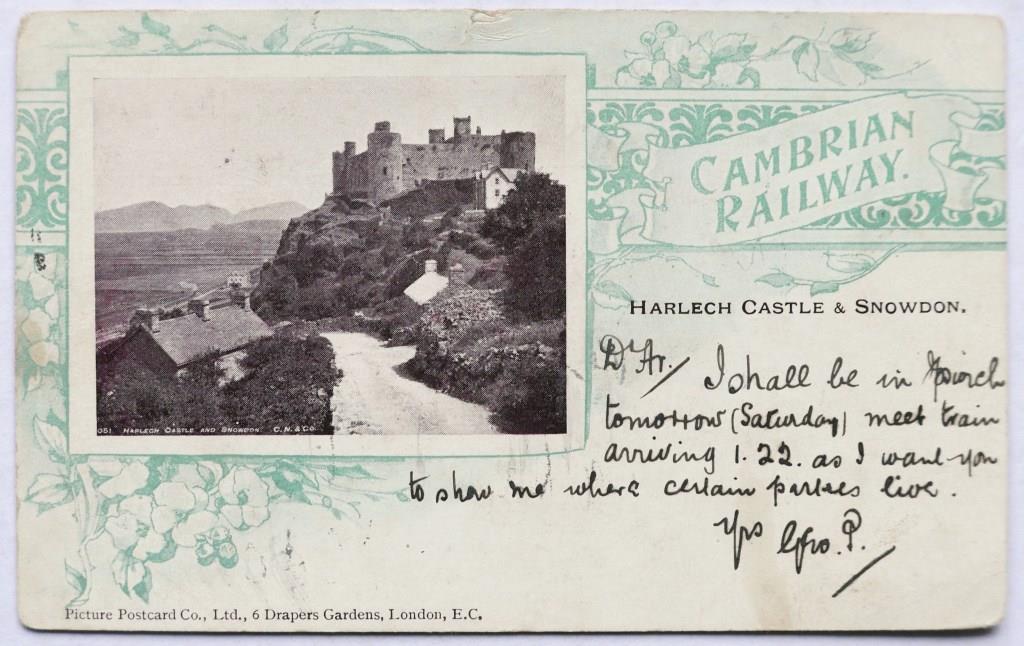 CAMBRIAN
RAILWAY.
HARLECH CASTLE & SNOWDON.
Dr Ar. / I shall be in Ipswich
tomorrow (Saturday) meet train
arriving 1.22. as I want you
to show me where certain parties live.
Yrs Geo. P. /
051 HARLECH CASTLE AND SNOWDON C.N. & CO.
Picture Postcard Co., Ltd., 6 Drapers Gardens, London, E.C.